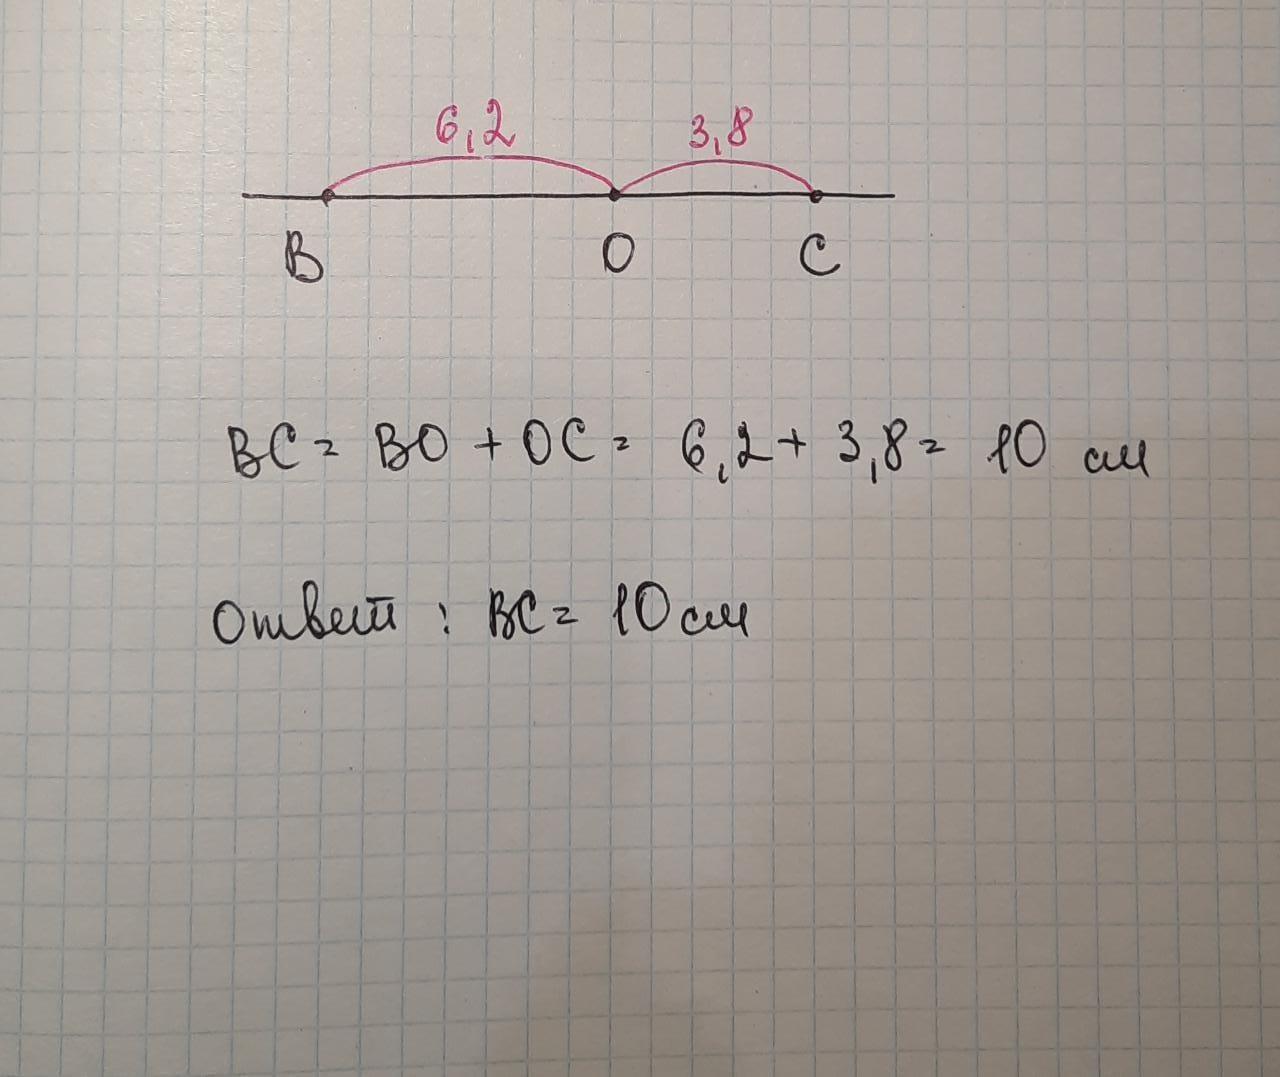 6,2 3,8
B O C
BC = BO + OC = 6,2 + 3,8 = 10 см
Ответ : BC = 10 см